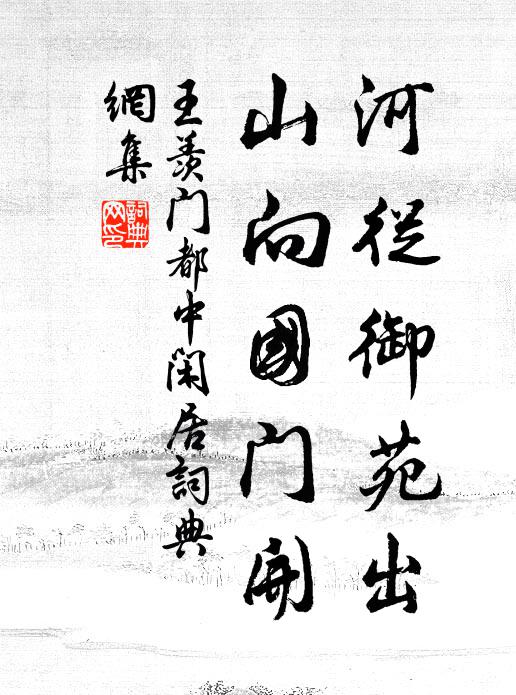 河從御苑出
山向國門開
王羨門都中閑居詞典
網集
詞典
網印